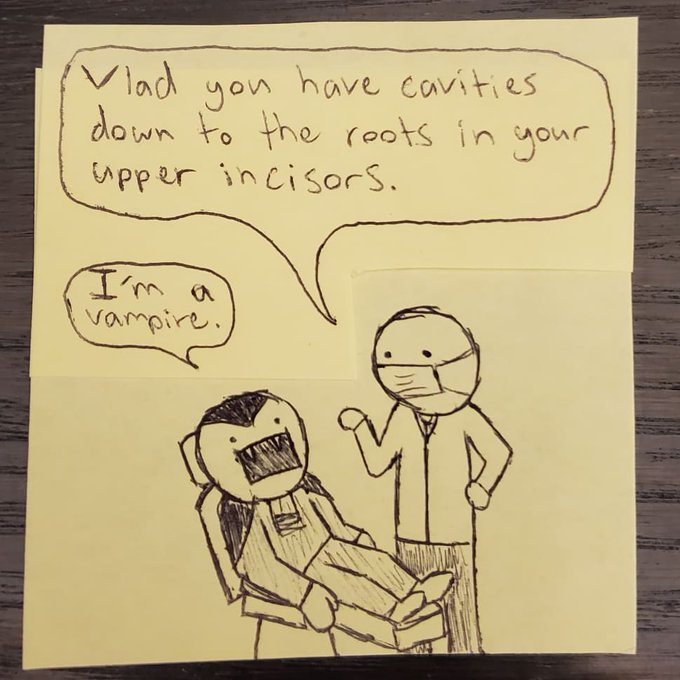 Vlad you have cavities
down to the roots in your
upper incisors.
I'm a
vampire.